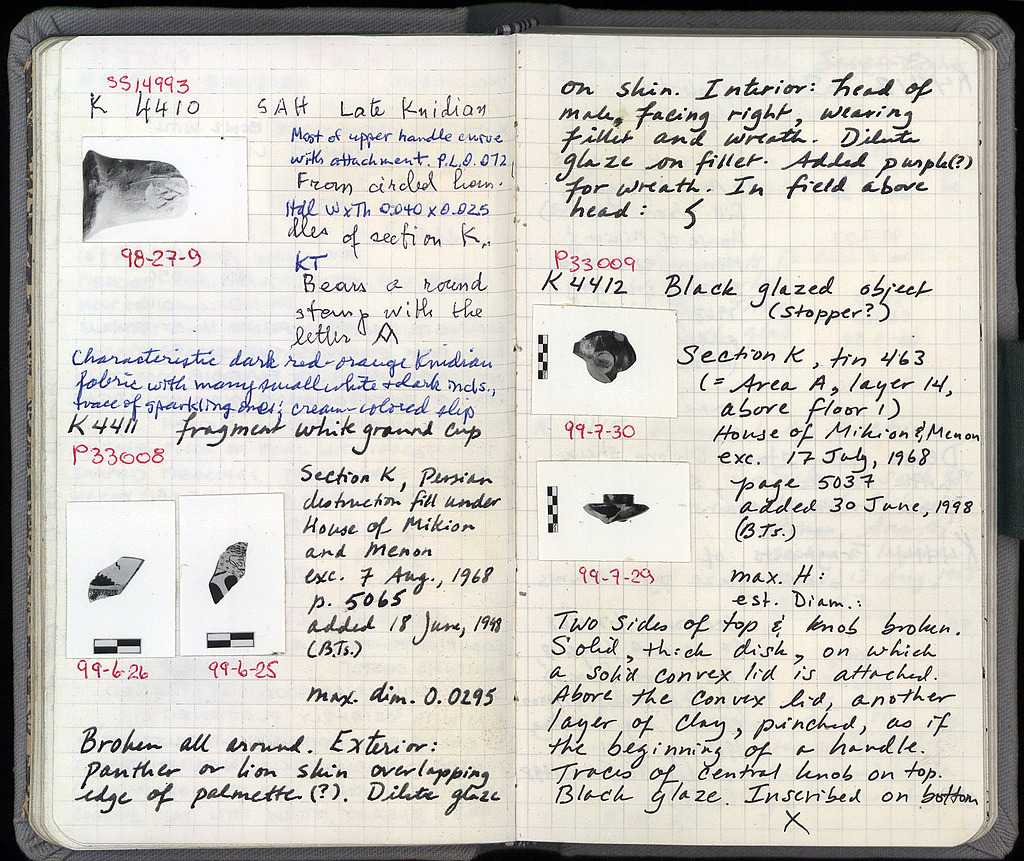 SS14993
K 4410 SAH Late Knidian
Most of upper handle curve
with attachment. P.L.0.072
From circled han-
Hdl W x Th 0.040 x 0.025
dles of section K,
KT
Bears a round
stamp with the
letter A
98-27-9
Characteristic dark red-orange Knidian
fabric with many small white + dark incls.,
trace of sparkling ones; cream-colored slip
K 4411 fragment white ground cup
P33008
Section K, Persian
destruction fill under
House of Mikion
and Menon
exc. 7 Aug., 1968
p. 5065
added 18 June, 1998
(B.Ts.)
99-6-26 99-6-25
max. dim. 0.0295
Broken all around. Exterior:
panther or lion skin overlapping
edge of palmette (?). Dilute glaze
on skin. Interior: head of
male, facing right, wearing
fillet and wreath. Dilute
glaze on fillet. Added purple(?)
for wreath. In field above
head:
P33009
K 4412 Black glazed object
(stopper?)
Section K, tin 463
(= Area A, layer 14,
above floor 1)
House of Mikion & Menon
exc. 17 July, 1968
page 5037
added 30 June, 1998
(B.Ts.)
99-7-30
99-7-29
max. H:
est. Diam.:
Two sides of top & knob broken.
Solid, thick disk, on which
a solid convex lid is attached.
Above the convex lid, another
layer of clay, pinched, as if
the beginning of a handle.
Traces of central knob on top.
Black glaze. Inscribed on bottom
X